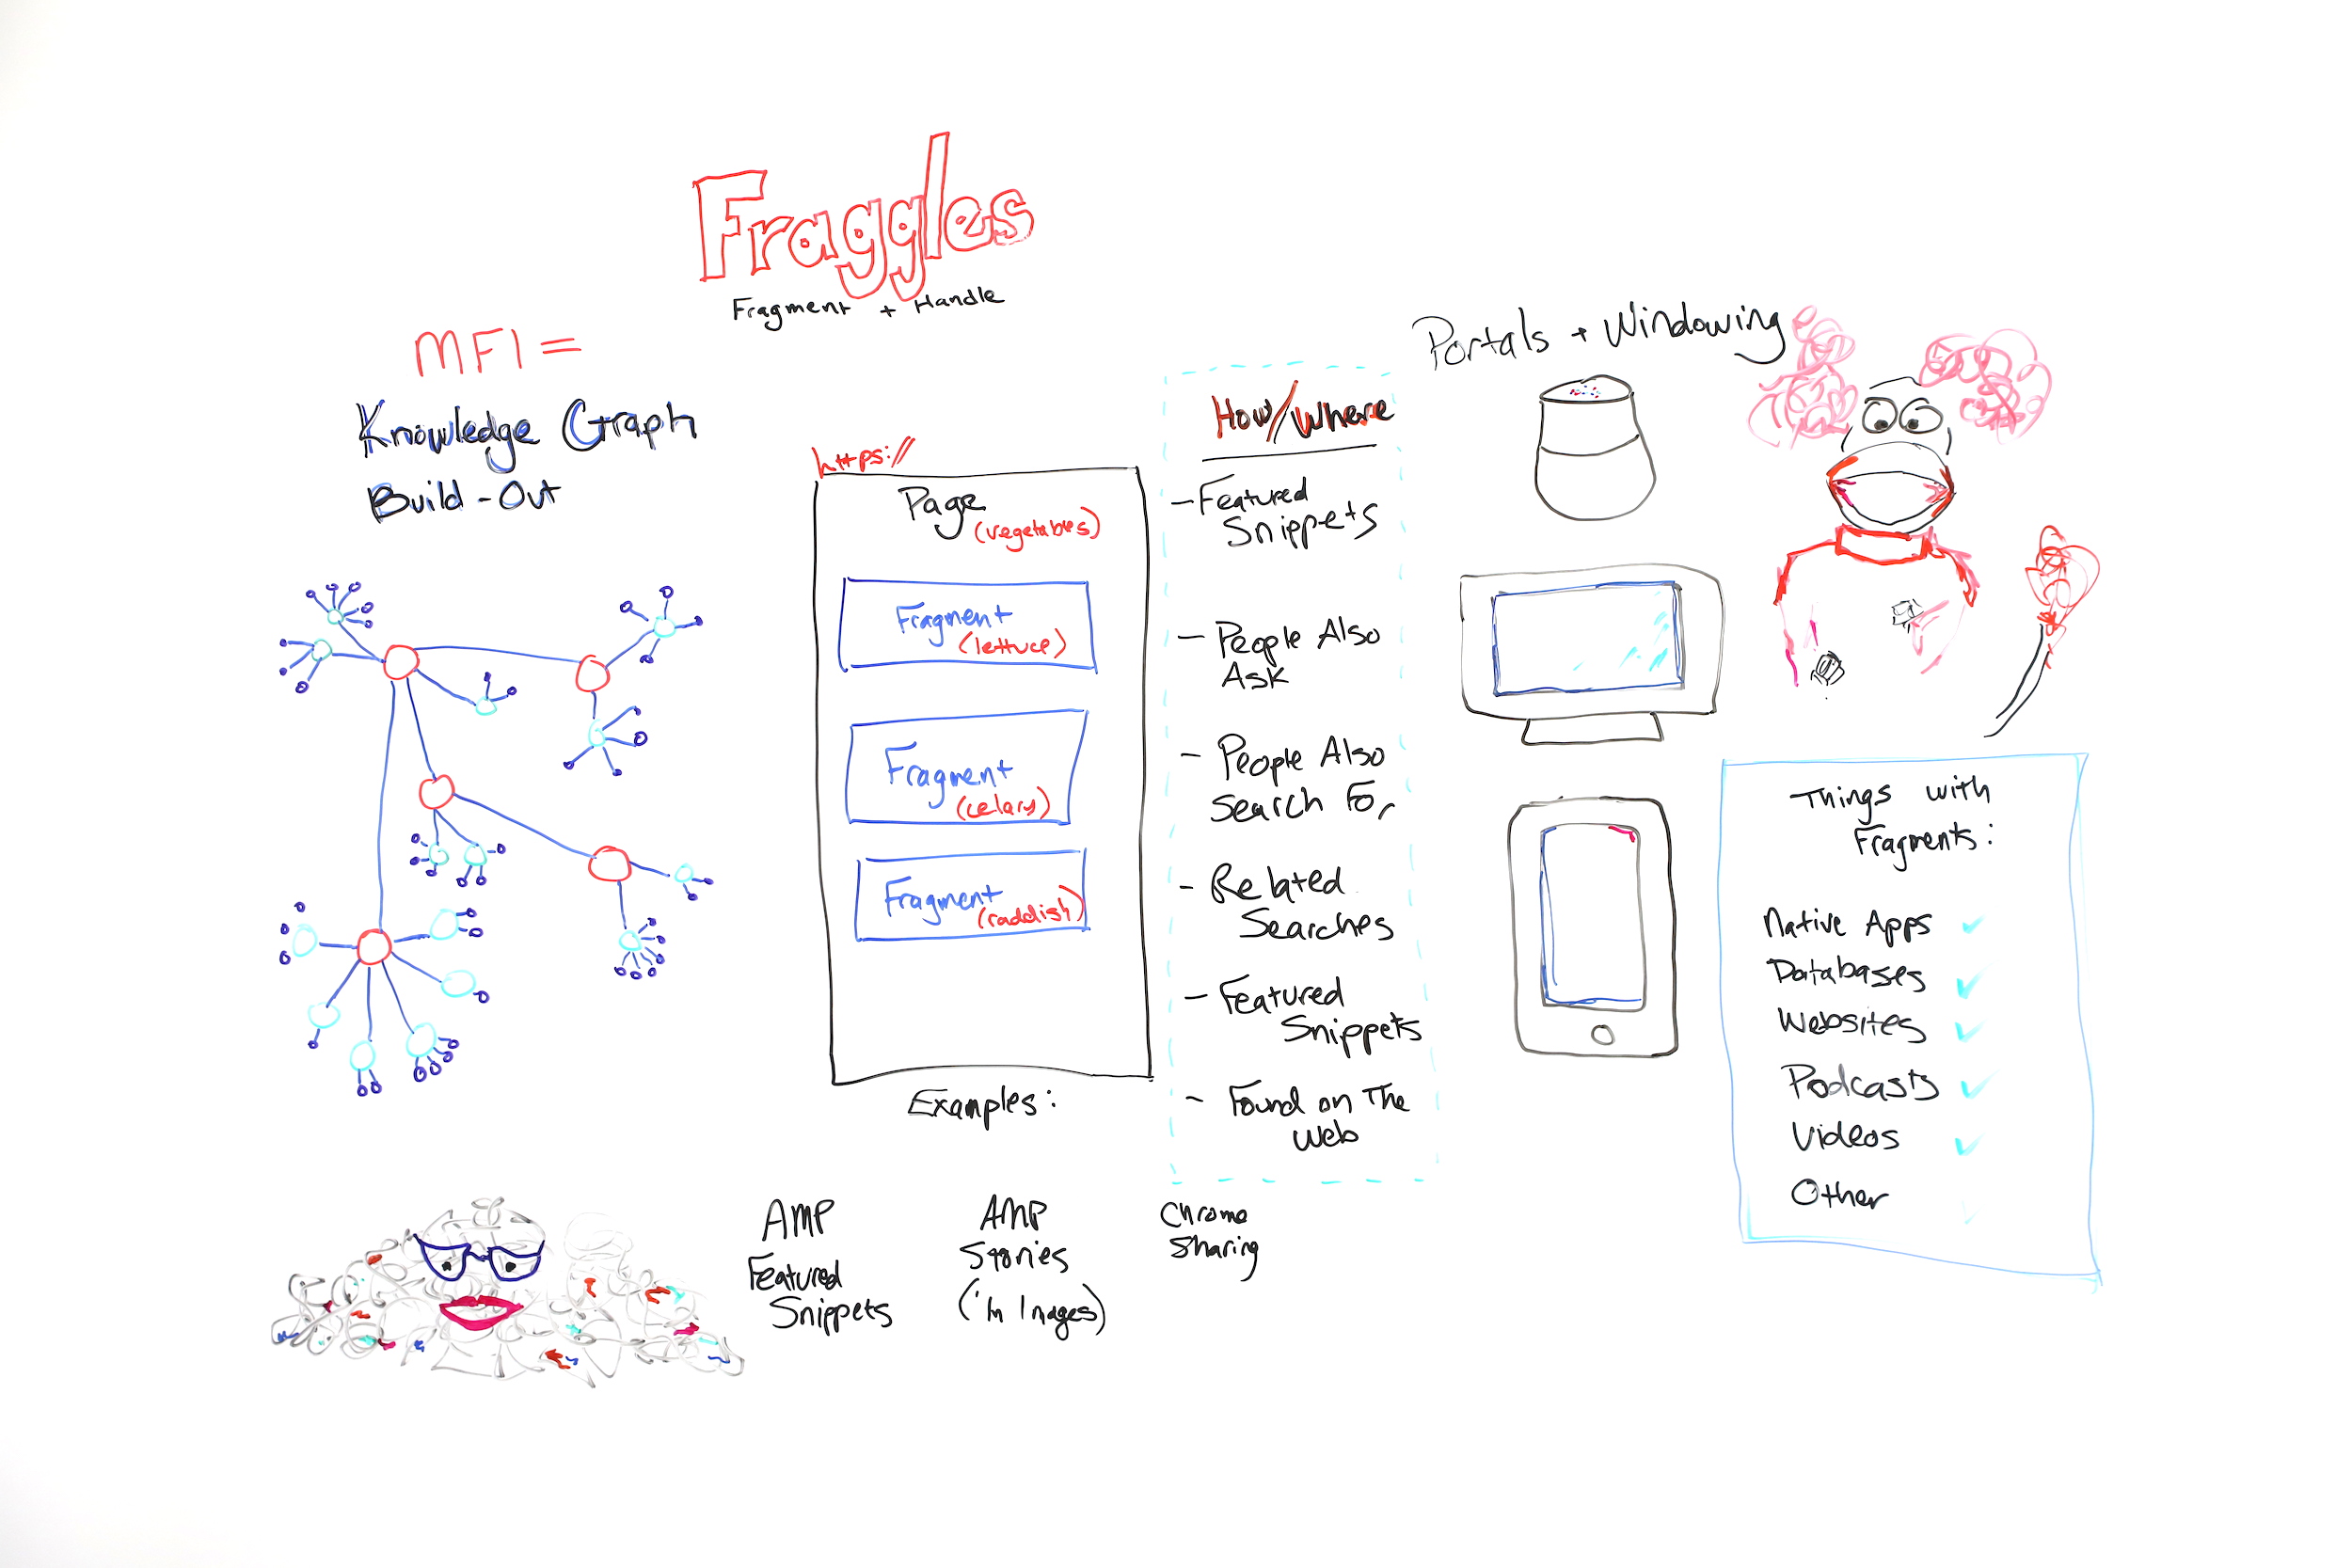 Fraggles
Fragment + Handle
MFI =
Knowledge Graph
Build-Out
https://
Page
(vegetables)
Fragment
(lettuce)
Fragment
(celary)
Fragment
(raddish)
Examples:
AMP
Featured
Snippets
AMP
Stories
(in Images)
Chrome
Sharing
How/Where
- Featured
Snippets
- People Also
Ask
- People Also
Search For
- Related
Searches
- Featured
Snippets
- Found on The
Web
Portals + Windowing
Things with
Fragments:
Native Apps ✓
Databases ✓
Websites ✓
Podcasts ✓
Videos ✓
Other